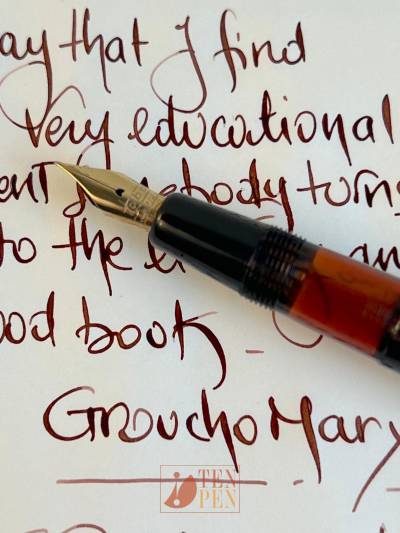 ay that I find
very educational
ent body turns
to the li an
ood book -
Groucho Marx
TEN
PEN